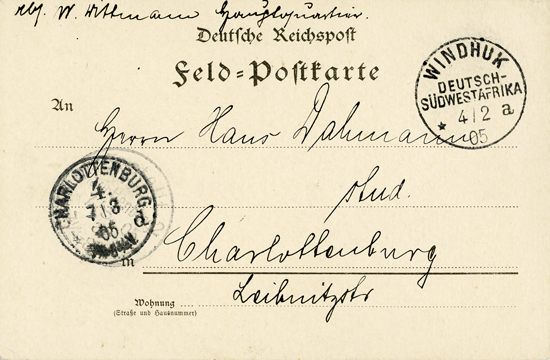 Abs. W. Dittmann Hauptquartier.
Deutsche Reichspost
Feld=Postkarte
WINDHUK
DEUTSCH-
SÜDWESTAFRIKA
* 4/2 a
05
An
Herrn Hans Dahmann
stud.
CHARLOTTENBURG
4.
7/3
05
d
in
Charlottenburg
Leibnitzstr
Wohnung
(Straße und Hausnummer)